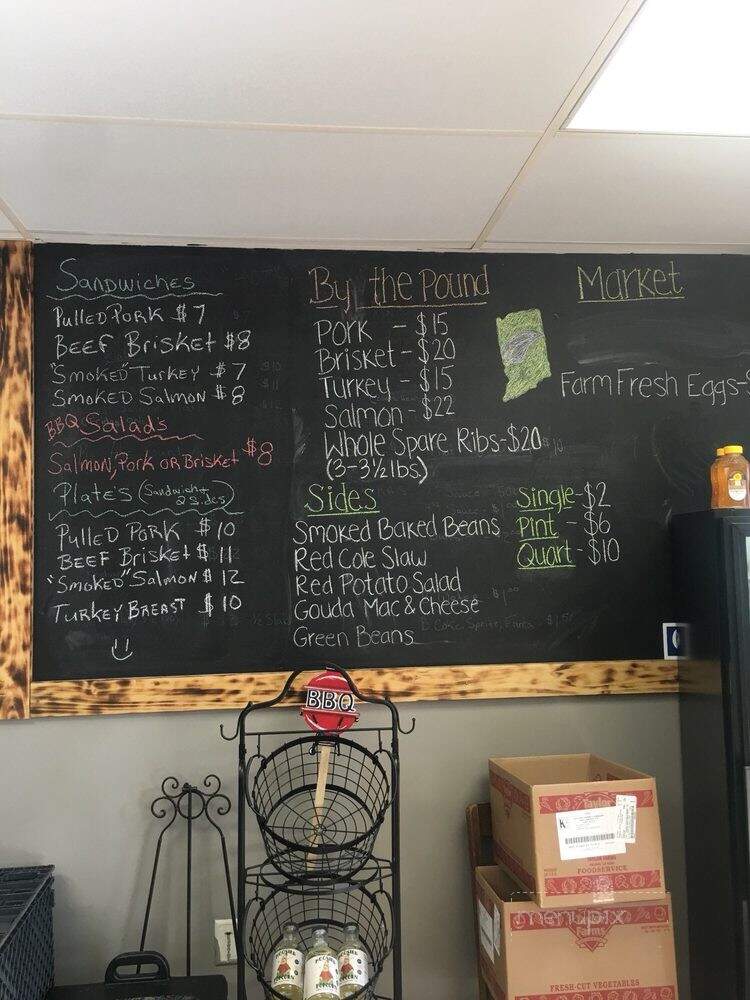 Sandwiches
Pulled Pork $7
Beef Brisket $8
"Smoked" Turkey $7
Smoked Salmon $8
BBQ Salads
Salmon, Pork or Brisket $8
Plates (Sandwich + 2 sides)
Pulled Pork $10
Beef Brisket $11
"Smoked" Salmon $12
Turkey Breast $10
By the Pound
Pork - $15
Brisket - $20
Turkey - $15
Salmon - $22
Whole Spare Ribs - $20
(3-3½ lbs)
Sides
Smoked Baked Beans
Red Cole Slaw
Red Potato Salad
Gouda Mac & Cheese
Green Beans
Single - $2
Pint - $6
Quart - $10
Market
Farm Fresh Eggs-
BBQ
POPCORN
POPCORN
Taylor
K
FOODSERVICE
menupix
Farms
FRESH-CUT VEGETABLES